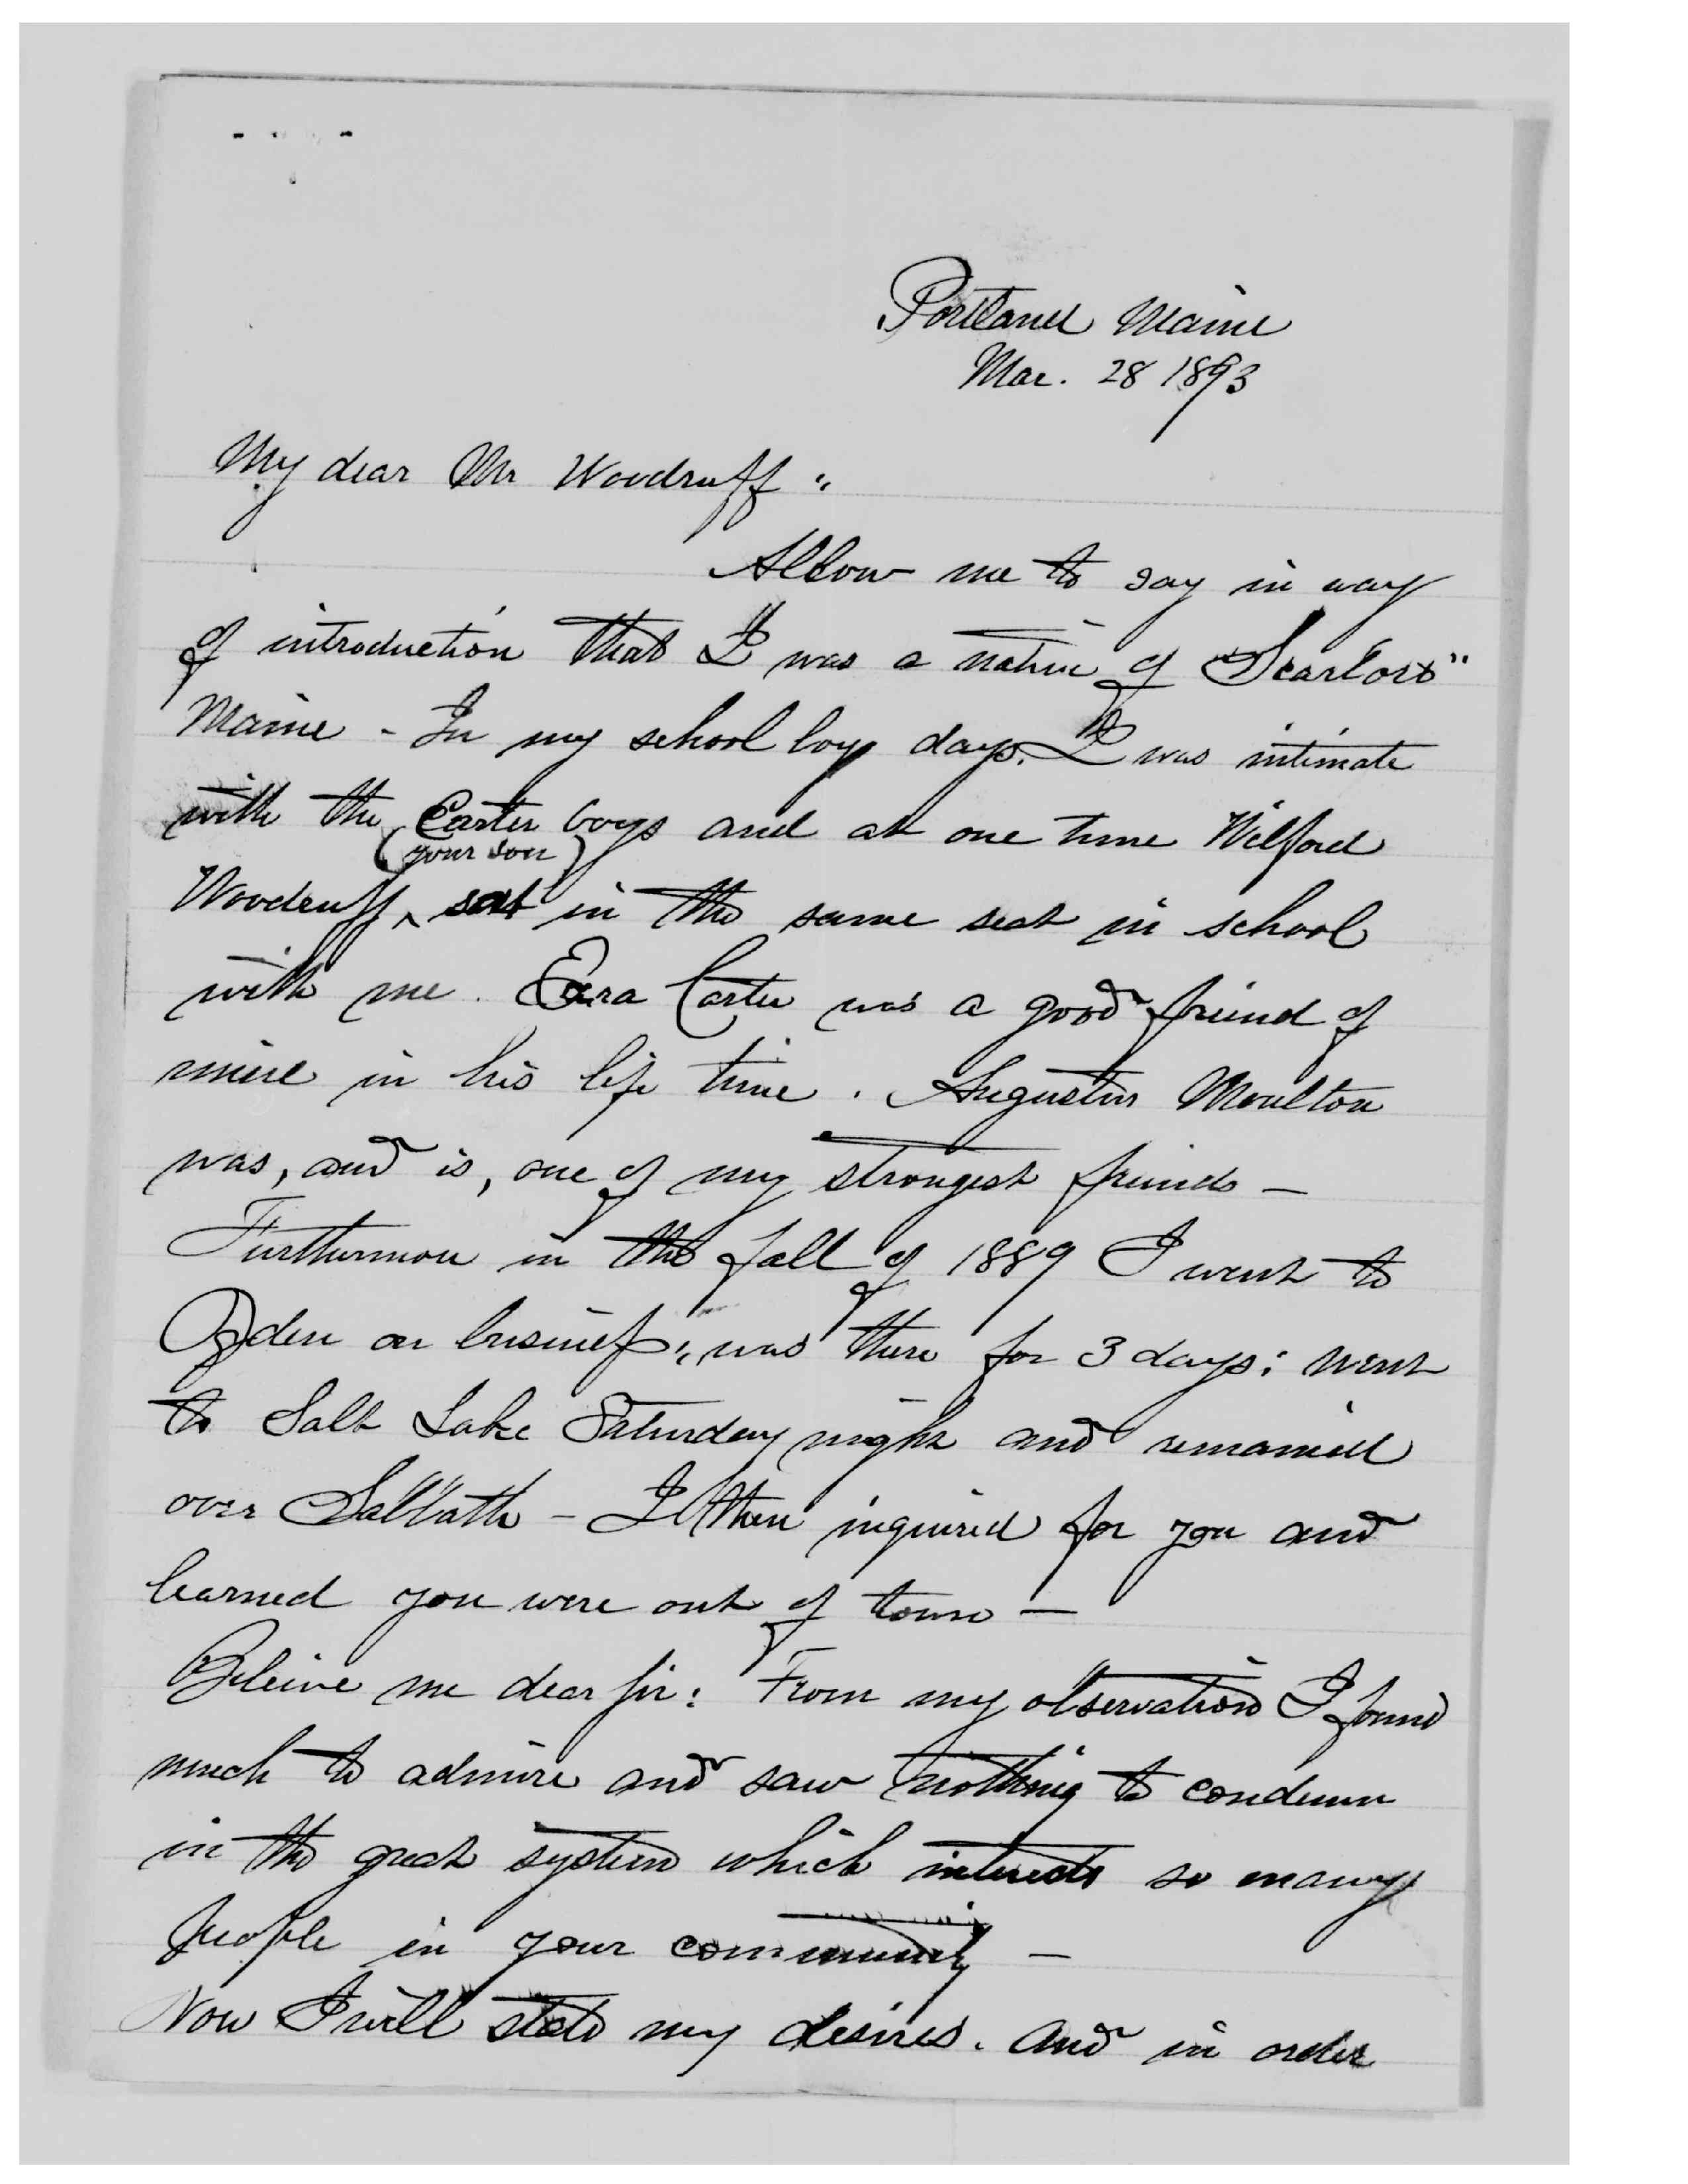 Portland Maine
Mar. 28 1893
My dear Mr Woodruff :
Allow me to say in way
of introduction that I was a native of Scarboro"
Maine - In my school boy days, I was intimate
with the Carter boys and at one time Wilford
(your son)
Woodruff ^ sat in the same seat in school
with me . Ezra Carter was a good friend of
mine in his life time . Augustus Moulton
was, and is, one of my strongest friends -
Furthermore in the fall of 1889 I went to
Ogden on business ; was there for 3 days; went
to Salt Lake Saturday night and remained
over Sabbath - I then inquired for you and
learned you were out of town -
Beleive me dear sir : From my observation I found
much to admire and saw nothing to condemn
in the great system which interests so many
people in your community -
Now I will state my desires. and in order